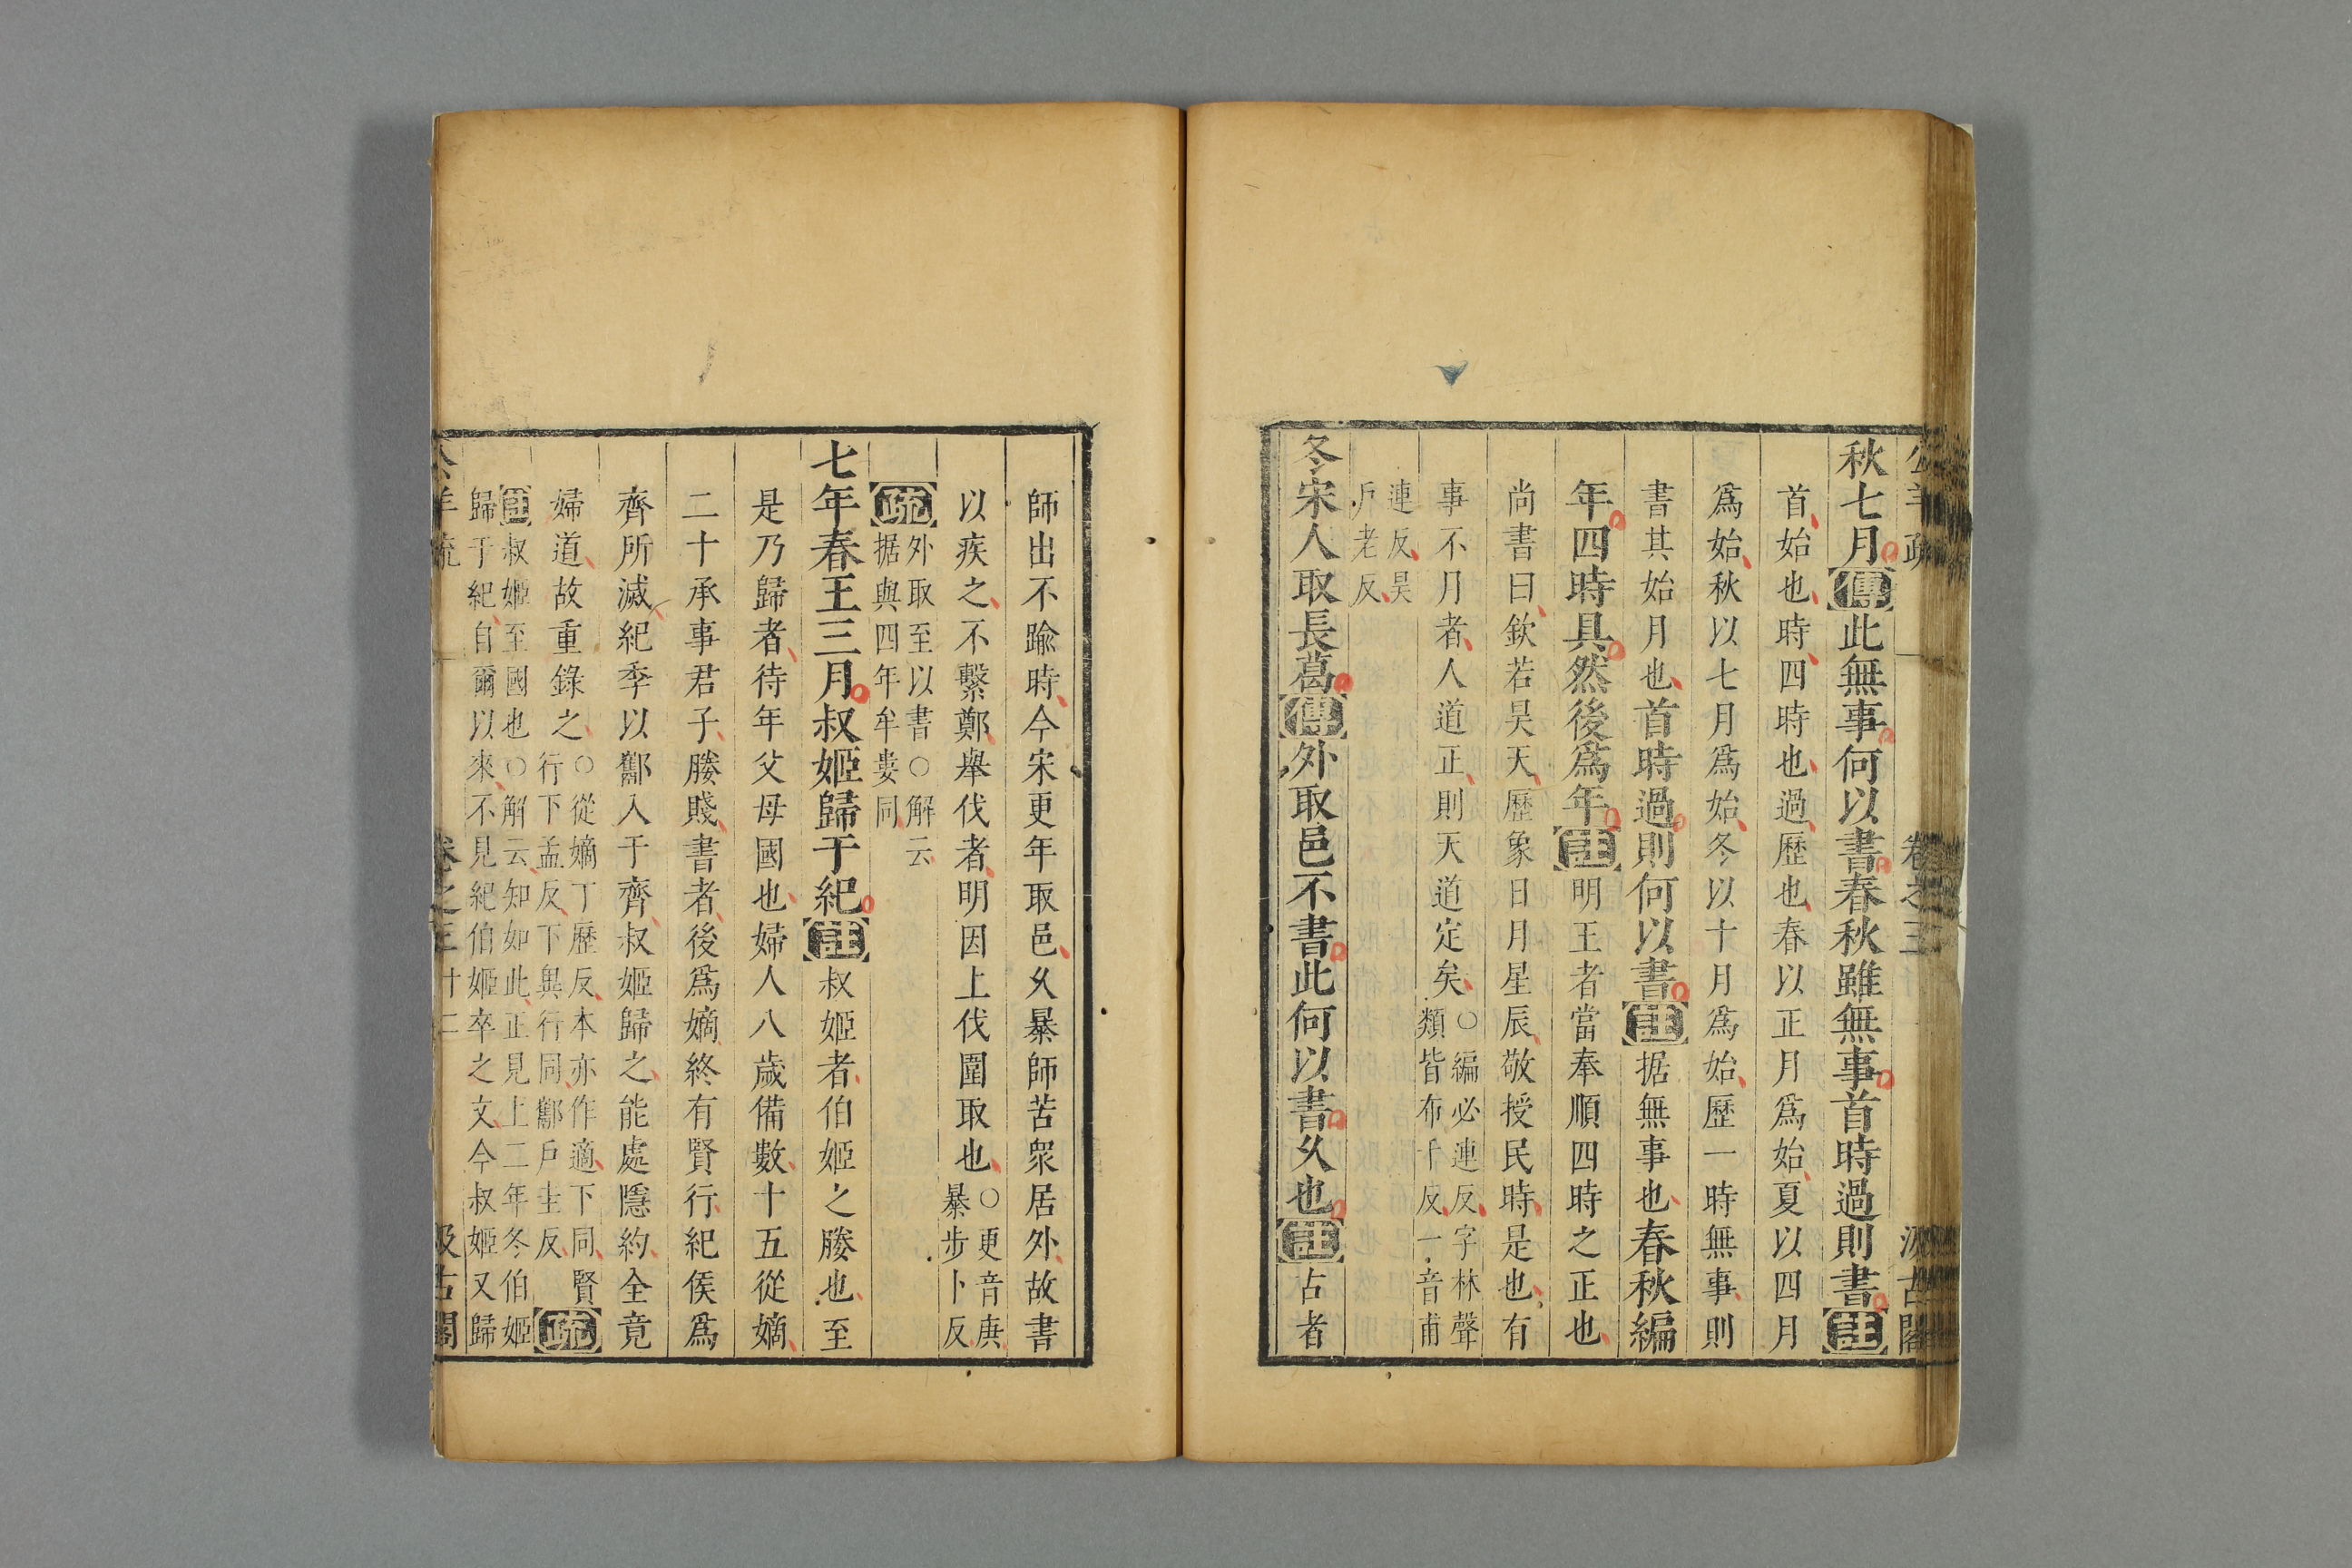 公羊疏 卷之三 汲古閣
秋七月傳此無事何以書春秋雖無事首時過則書註
首始也時四時也過歷也春以正月爲始夏以四月
爲始秋以七月爲始冬以十月爲始歷一時無事則
書其始月也首時過則何以書註据無事也春秋編
年四時具然後爲年註明王者當奉順四時之正也
尚書曰欽若昊天歷象日月星辰敬授民時是也有
事不月者人道正則天道定矣○編必連反字林聲
類皆布千反一音甫
連反昊
戶老反
冬宋人取長葛傳外取邑不書此何以書久也註古者
師出不踰時今宋更年取邑久暴師苦衆居外故書
以疾之不繫鄭舉伐者明因上伐圍取也○更音庚
暴步卜反
疏外取至以書○解云
据與四年牟婁同
七年春王三月叔姬歸于紀註叔姬者伯姬之媵也至
是乃歸者待年父母國也婦人八歲備數十五從嫡
二十承事君子媵賤書者後爲嫡終有賢行紀侯爲
齊所滅紀季以酅入于齊叔姬歸之能處隱約全竟
婦道故重錄之○從嫡丁歷反本亦作適下同賢
行下孟反下與行同酅戶圭反疏
註叔姬至國也○解云知如此正見上二年冬伯姬
歸于紀自爾以來不見紀伯姬卒之文今叔姬又歸
公羊疏 卷之三 十二 汲古閣